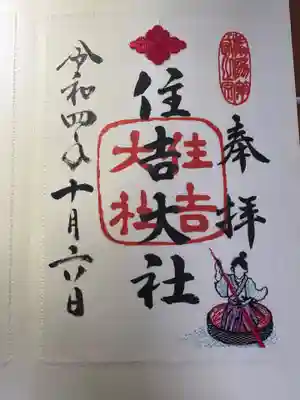 奉拝
住吉大社
住吉大社
令和四年十月六日